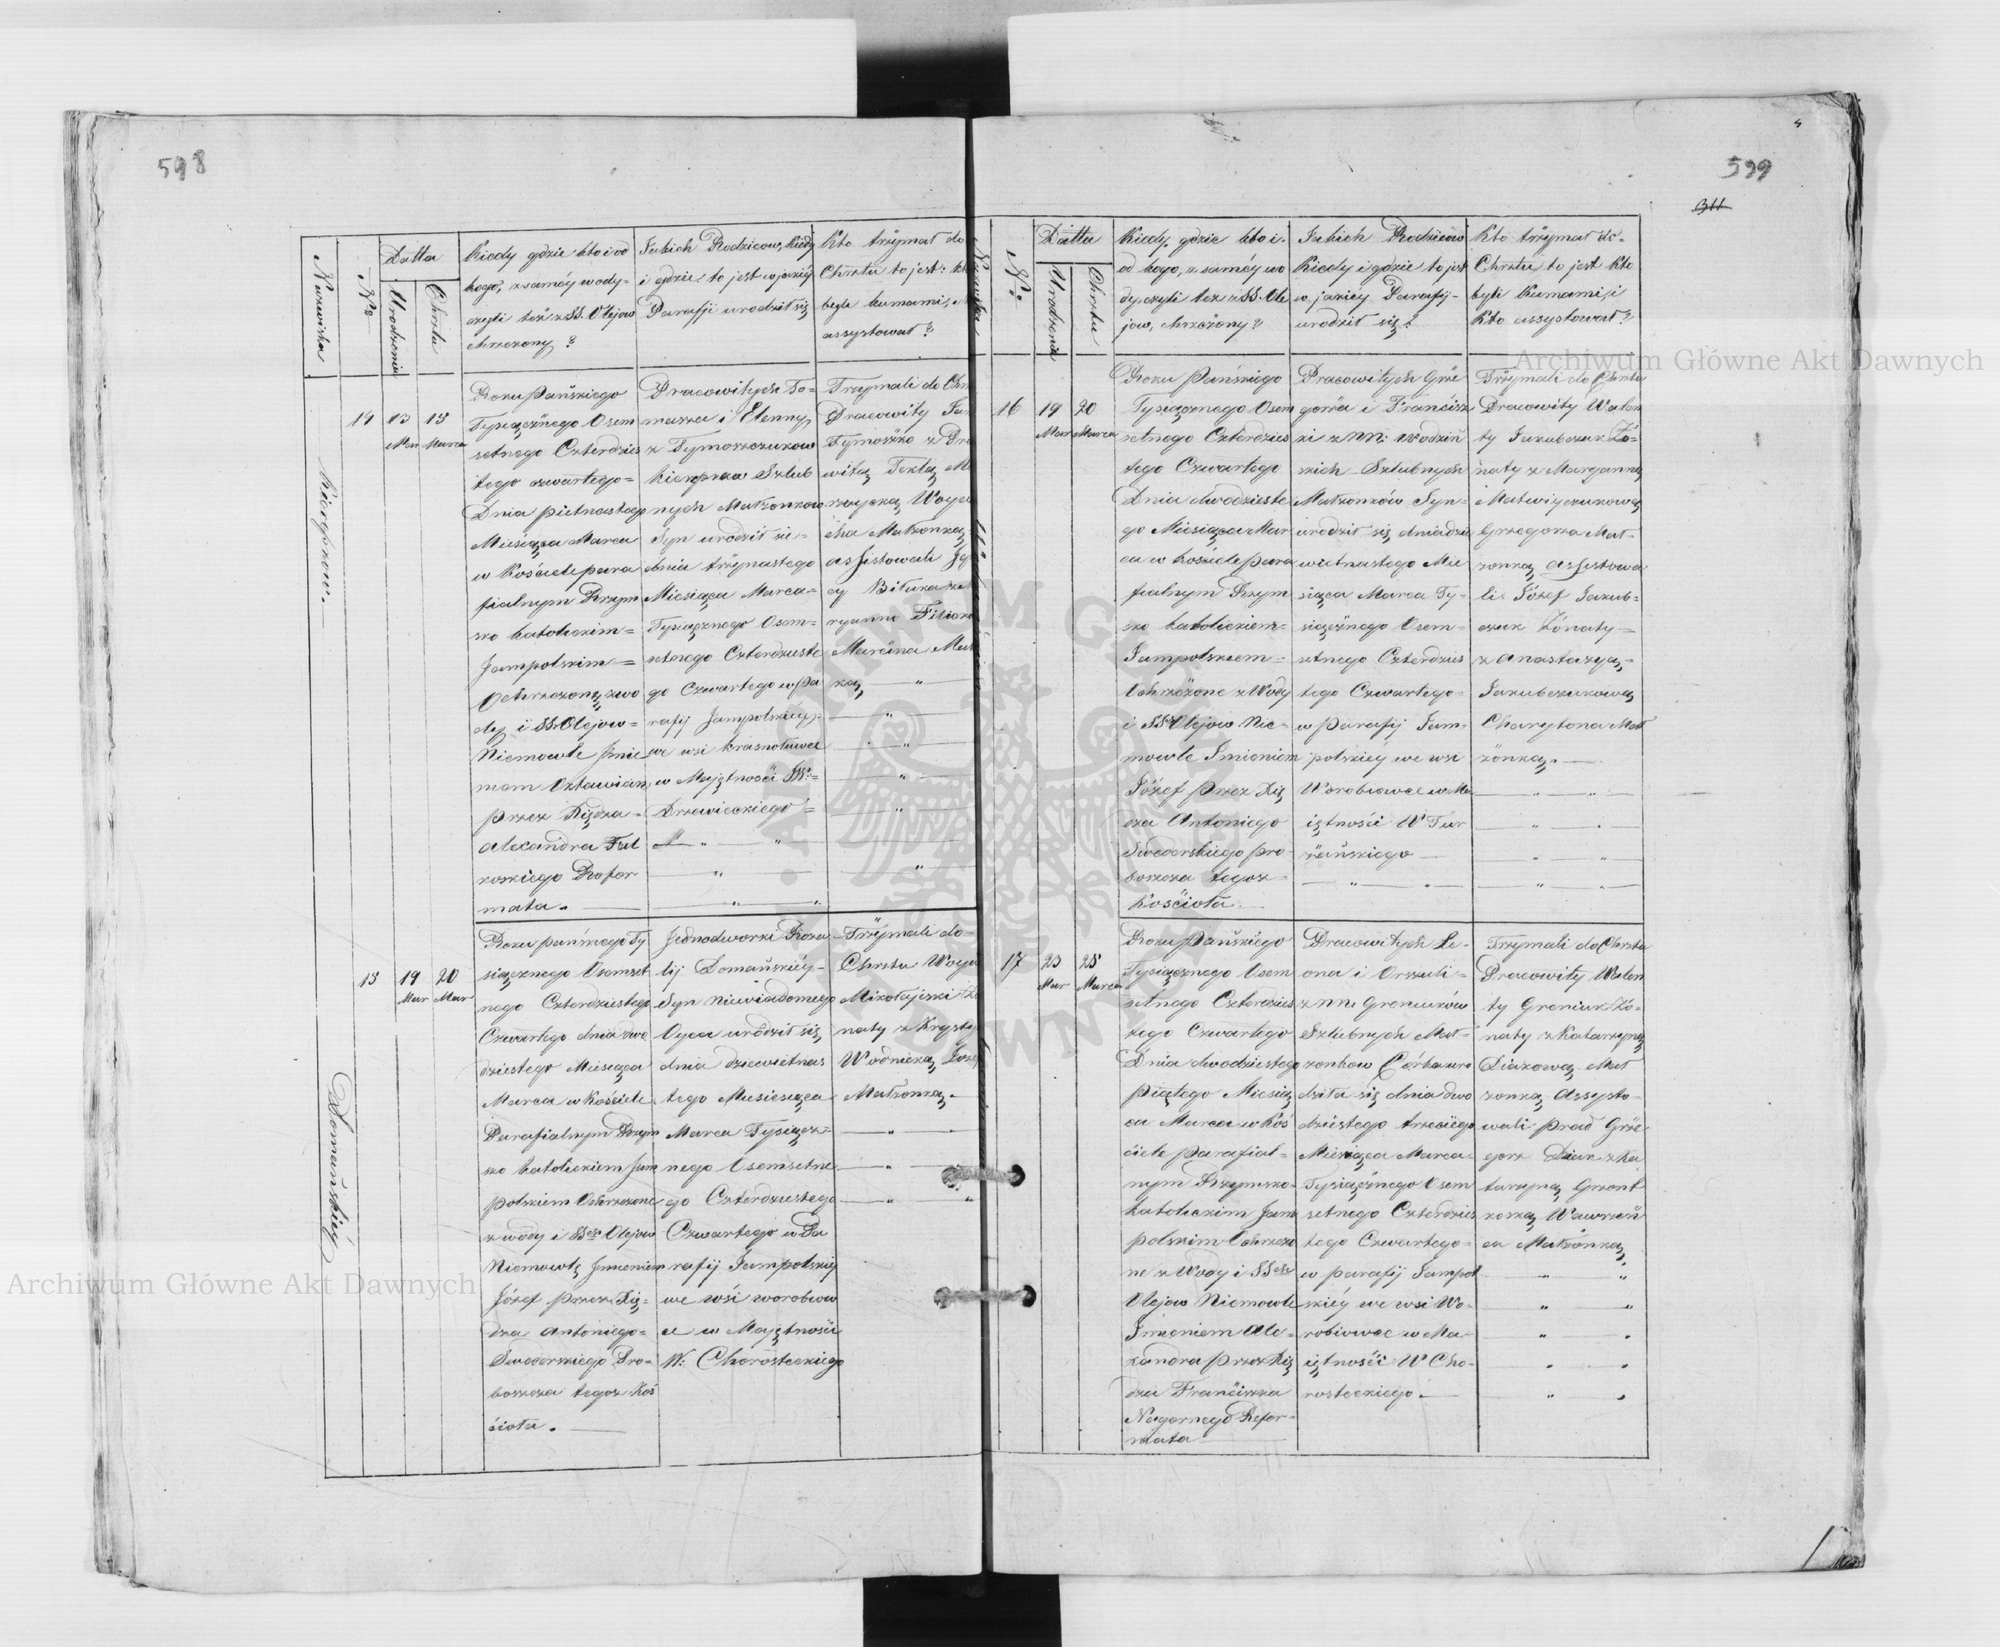 598
Nazwiska
N<sup>o</sup>
Datta
Urodzenia
Chrztu
Kiedy gdzie kto i od
kogo, z saméy wody-
czyli też z SS. Olejow
chrzczony ?
Jakich Rodzicow, kiedy
i gdzie to jest w jakiéy
Parafji urodził się
Kto trzymał do
Chrztu to jest: kto
byli kumami, i
assystował ?
14
13
Mar
15
Marca
Roku Pańskiego
Tysiącznego Osem
setnego Czterdzies
tego czwartego=
Dnia pietnastego
Miesiąca Marca
w Kościele para
fialnym Rzym
sko katolickim=
Jampolskim=
Ochrzczony z wo
dy i SS. Olejow=
Niemowle Jmie
niem Oktawian
przez Xiędza-
Alexandra
Refor
mata.
Pracowitych To=
masza i Elenny
z Tymoszczukow
Szlub
nych Małżonkow
Syn urodził sie-
dnia trzynastego
Miesiąca Marca-
Tysiącznego Osem-
setnego Czterdzieste
go Czwartego w Pa
rafij Jampolskiéy
we wsi Krasnołuwce
w Majętności JW:
Drzewieckiego
Trzymali do Chrz
Pracowity Jan
Tymoszko z Pra
witą Teklą M
Woyce
cha Małżonką
assistowali
cy Bituka z M
ryanną
Marcina Mał
ką
15
19
Mar
20
Mar
Domańskiéy
Roku pańskiego Ty
siącznego Osemset
nego Czterdziestego
Czwartego dnia dwu
dziestego Miesiąca
Marca w Kościele
Parafialnym Rzym
sko katolickiem Jam
polskiem Ochrzczone
z wody i SS<sup>ch</sup> Olejow
Niemowlę Jmieniem
Józef przez Xię-
dza Antoniego=
Swederskiego Pro-
boszcza tegoż Koś
cioła.
Jednodworki Roza
lij Domańskiéy-
Syn niewiadomego
Oyca urodził się
dnia dziewietnas
tego Miesiesiąca
Marca Tysiącz-
nego Osemsetne
go Czterdziestego
Czwartego w Pa
rafij Jampolskiéy
we wsi worobiow
ce w Majętności
W: Chorosteckiego
Trzymali do-
Chrztu Woyc
Mikołajeski Żo
naty z Krysty
Wodnicką Józe
Małżonką.
599
311
Nazwiska
N<sup>o</sup>
Datta
Urodzenia
Chrztu
Kiedy, gdzie kto i-
od kogo, z saméy wo
dy, czyli też z SS. Ole
jow, chrzczony ?
Jakich Rodzicow
Kiedy i gdzie to jest
w jakiey Parafij-
urodził się ?
Kto trzymał do-
Chrztu to jest Kto
byli Kumami, i
Kto assystował ?
16
19
Mar
20
Marca
Roku Pańskiego
Tysiącznego Osem
setnego Czterdzies
tego Czwartego
Dnia dwódzieste
go Miesiąca Mar
ca w kościele para
fialnym Rzym
sko katolickiem-
Jampolskiem=
Ochrzczone z Wody
i SS. Olejow Nie-
mowle Jmieniem
Józef przez Xię
dza Antoniego
Swederskiego pro-
boszcza tegoż-
kościoła.
Pracowitych Grze
gorza i Francisz
ki z nn:
skich Szlubnych
Małżonków Syn-
urodził się dnia dzie
wietnastego Mie
siąca Marca Ty-
siącznego Osem-
setnego Czterdzies
tego Czwartego-
w parafij Jam-
polskiéy we wsi
Worobiowce w Ma
iętności W Tur
żańskiego
Trzymali do Chrztu
Pracowity Walen
ty Jakubczuk Żo-
naty z Maryanną
Matwiyczukową
Grzegorza Mał-
żonką assistowa
li Józef Jakub-
czuk Żónaty=
z Anastazyą-
Jakubczukową
Charytona Mał
żónką.
17
23
Mar
25
Marca
Roku Pańskiego
Tysiącznego Osem
setnego Czterdzies
tego Czwartego
Dnia dwodziestego
Piątego Miesią
ca Marca w Koś
ciele parafial-
nym Rzymsko-
katolickim Jam
polskim Ochrzczo
ne z Wody i SS<sup>ch</sup>
Olejow Niemowle
Jmieniem Ale-
xandra przez Xię
dza Franciszka
Nagornego Refor-
mata
Pracowitych Le-
ona i Orszuli-
z nn: Greniuków
Szlubnych Mał-
żonkow Córka uro
dziła się dnia dwo
dziestego trzeciego
Miesiąca Marca-
Tysiącznego Osem
setnego Czterdzies
tego Czwartego-
w parafij Jampol
skiéy we wsi Wo-
robiowce w Ma-
iętności W Cho-
rosteckiego.
Trzymali do Chrztu
Pracowity Walen
ty Greniuk Żó-
naty z Katarzyną
Diakową Mał
żonką Assysto-
wali Grze
gorz Dian z Ka
tarzyną
Wawrzeń
ca Małżónką
Archiwum Główne Akt Dawnych
Archiwum Główne Akt Dawnych